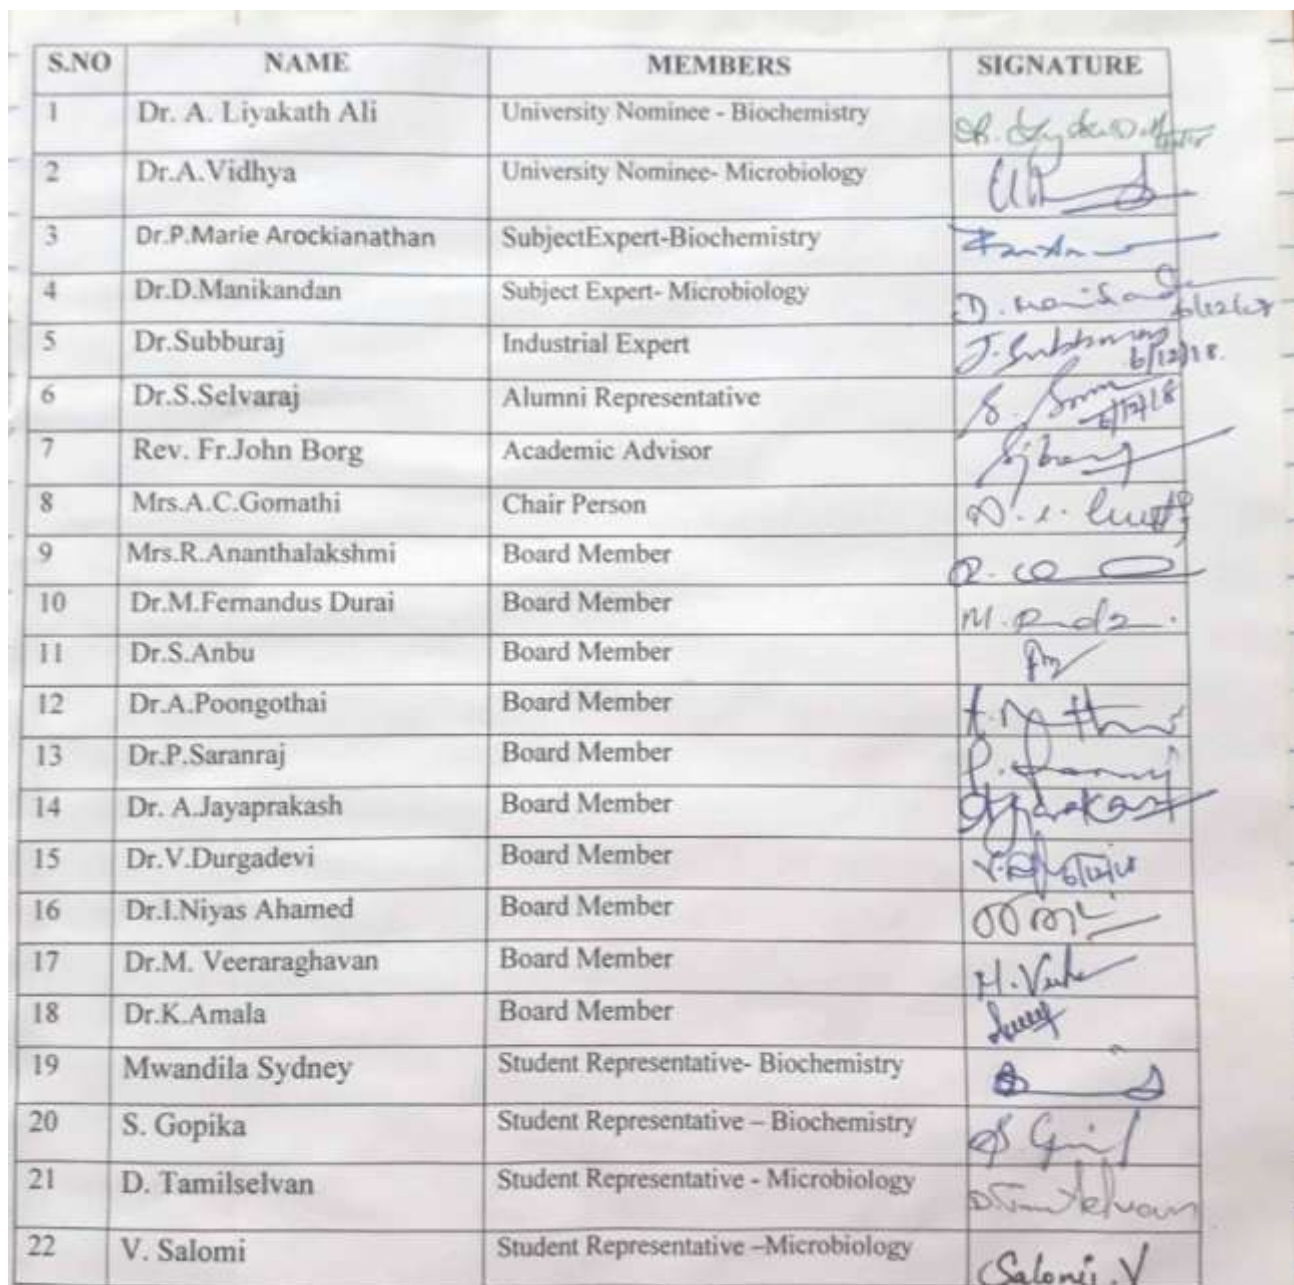 S.NO NAME MEMBERS SIGNATURE
1 Dr. A. Liyakath Ali University Nominee - Biochemistry
2 Dr.A.Vidhya University Nominee- Microbiology
3 Dr.P.Marie Arockianathan SubjectExpert-Biochemistry
4 Dr.D.Manikandan Subject Expert- Microbiology D.
5 Dr.Subburaj Industrial Expert J. 6/12/18.
6 Dr.S.Selvaraj Alumni Representative S. 6/12/18
7 Rev. Fr.John Borg Academic Advisor
8 Mrs.A.C.Gomathi Chair Person
9 Mrs.R.Ananthalakshmi Board Member
10 Dr.M.Fernandus Durai Board Member M.
11 Dr.S.Anbu Board Member
12 Dr.A.Poongothai Board Member
13 Dr.P.Saranraj Board Member
14 Dr. A.Jayaprakash Board Member
15 Dr.V.Durgadevi Board Member
16 Dr.I.Niyas Ahamed Board Member
17 Dr.M. Veeraraghavan Board Member
18 Dr.K.Amala Board Member
19 Mwandila Sydney Student Representative- Biochemistry
20 S. Gopika Student Representative – Biochemistry
21 D. Tamilselvan Student Representative - Microbiology
22 V. Salomi Student Representative –Microbiology Salomi.V